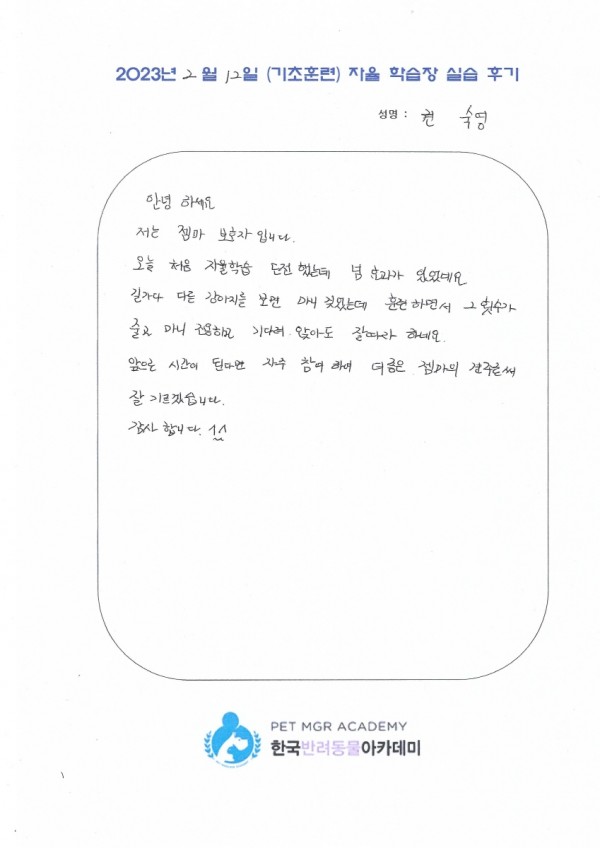 2023년 2월 12일 (기초훈련) 자율 학습장 실습 후기
성명 : 권 숙영
안녕 하세요
저는 젬마 보호자 입니다.
오늘 처음 자율학습 도전 했는데 넘 효과가 있었데요
길가다 다른 강아지를 보면 마니 짖었는데 훈련 하면서 그 횟수가
줄고 마니 건용하고 기다려. 앉아도 잘따라 하네요.
앞으로 시간이 된다면 자주 참여 하여 더욱 젬마의 견주로써
잘 기르겠습니다.
감사 합니다. ^^
PET MGR ACADEMY
한국반려동물아카데미